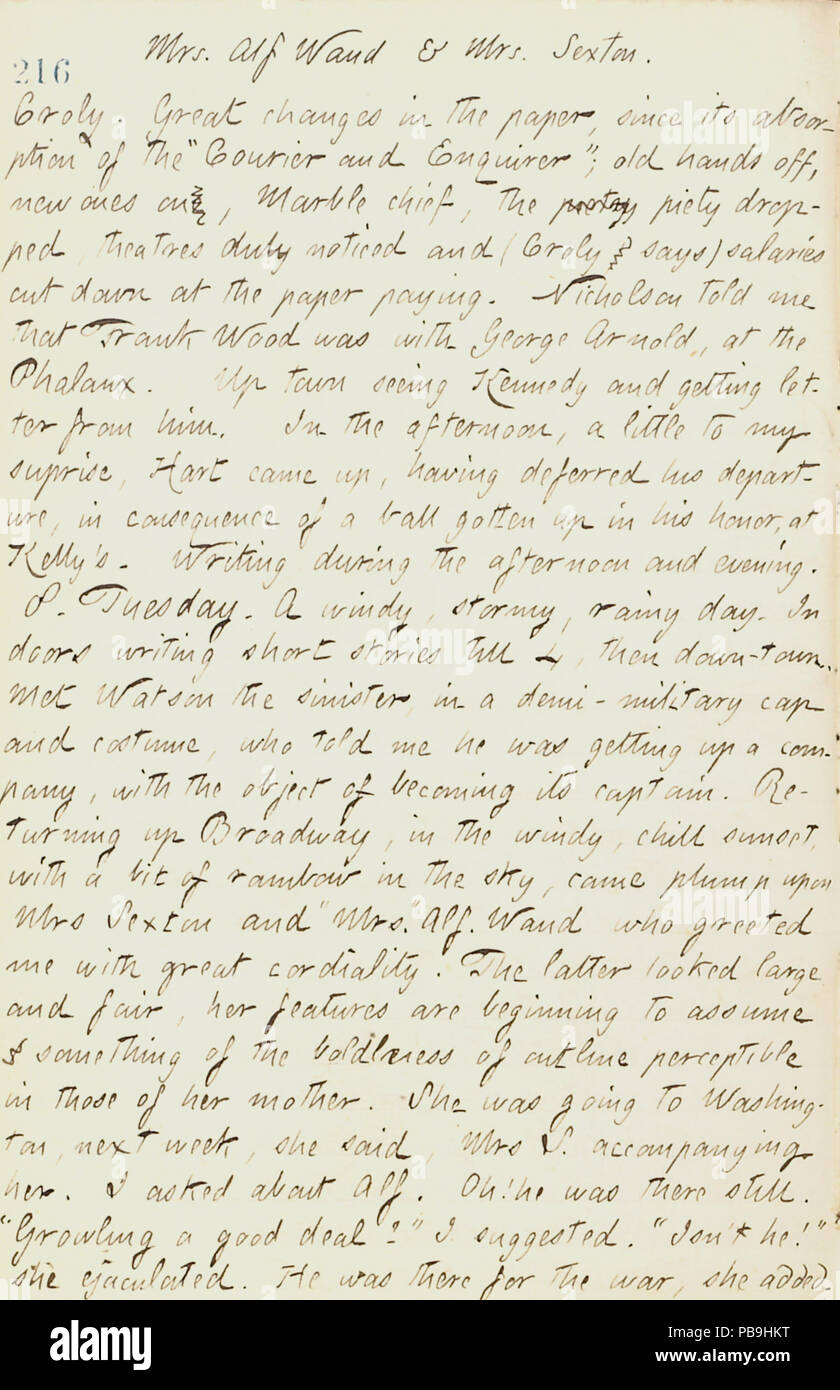 Mrs. Alf Waud & Mrs. Sexton.
216
Croly. Great changes in the paper, since its absor-
ption of the "Courier and Enquirer"; old hands off,
new ones on, Marble chief, the piety drop-
ped, theatres duly noticed and (Croly says) salaries
cut down at the paper paying. Nicholson told me
that Frank Wood was with George Arnold, at the
Phalanx. Up town seeing Kennedy and getting let-
ter from him. In the afternoon, a little to my
suprise, Hart came up, having deferred his depart-
ure, in consequence of a ball gotten up in his honor, at
Kelly's. Writing during the afternoon and evening.
8. Tuesday. A windy, stormy, rainy day. In
doors writing short stories till 4, then down-town.
Met Watson the sinister, in a demi-military cap
and costume, who told me he was getting up a com-
pany, with the object of becoming its captain. Re-
turning up Broadway, in the windy, chill sunset,
with a bit of rainbow in the sky, came plump upon
Mrs Sexton and "Mrs." Alf. Waud who greeted
me with great cordiality. The latter looked large
and fair, her features are beginning to assume
something of the boldness of outline perceptible
in those of her mother. She was going to Washing-
ton, next week, she said, Mrs S. accompanying
her. I asked about Alf. Oh! he was there still.
"Growling a good deal?" I suggested. "Isn't he!"
she ejaculated. He was there for the war, she added.
alamy
Image ID: PB9HKT
www.alamy.com